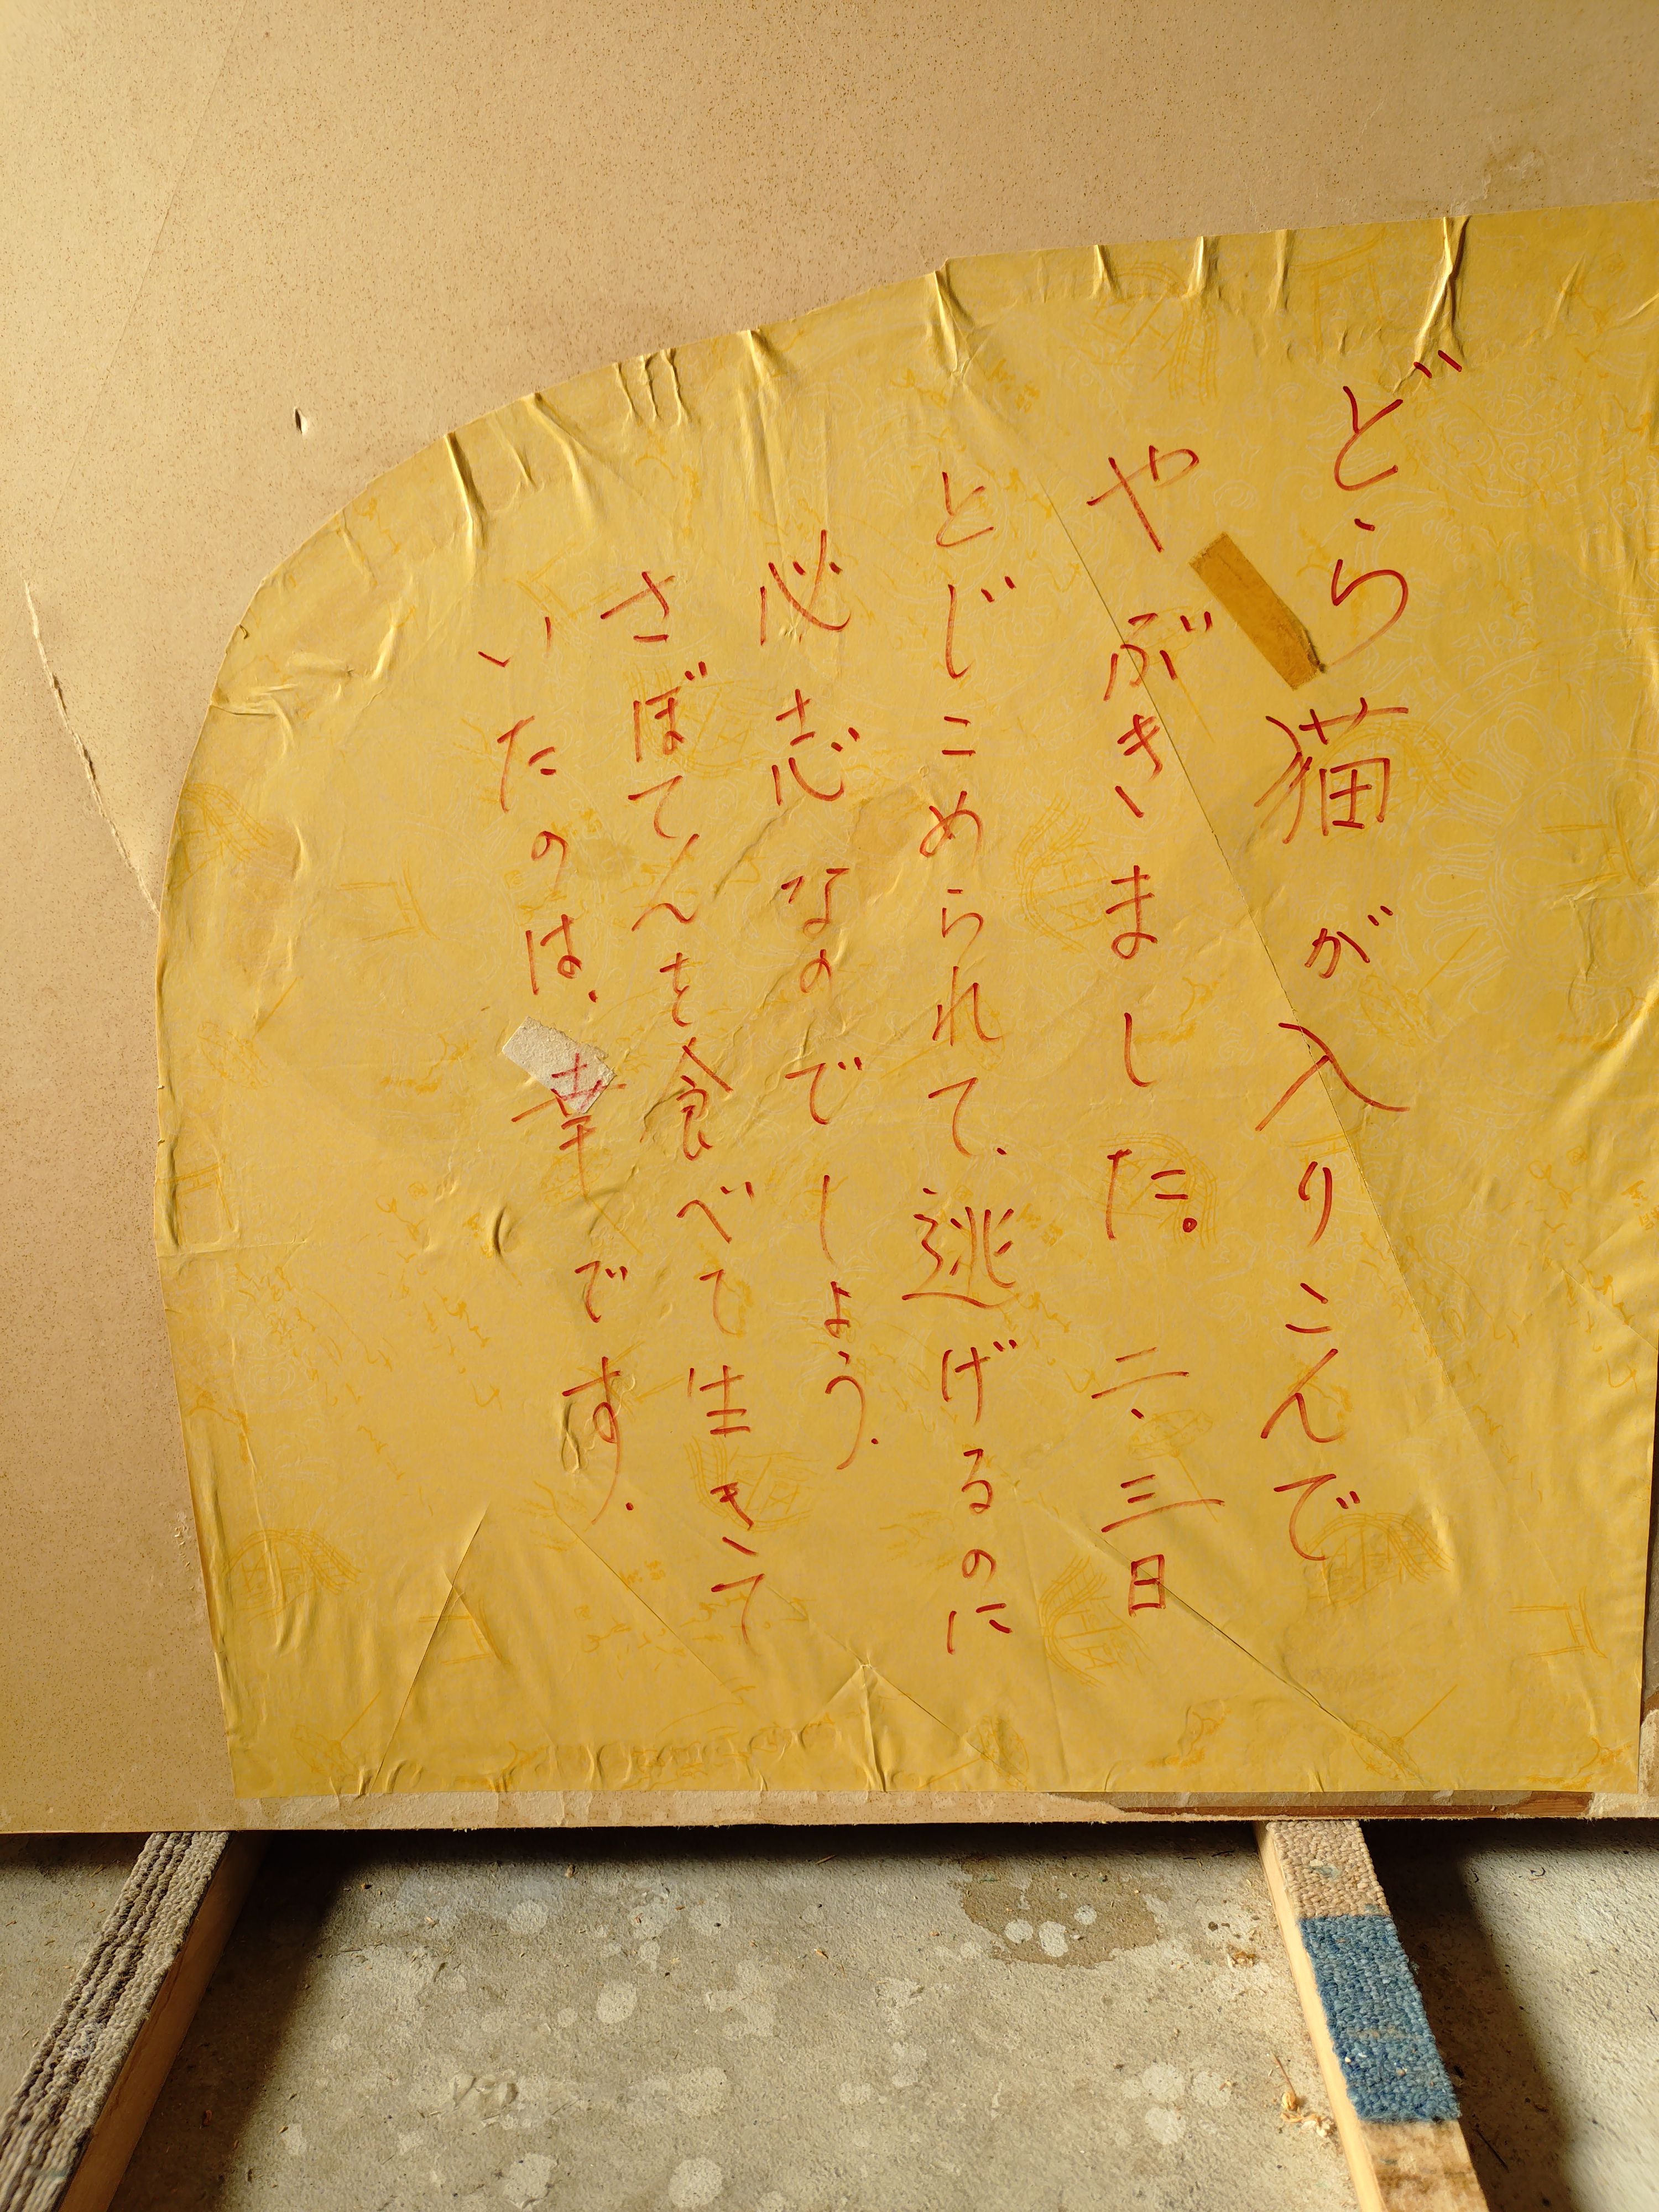 どら猫が入りこんで
やぶきました。 二、三日
とじこめられて、逃げるのに
必志なのでしょう.
さぼてんを食べて生きて
いたのは、幸です.